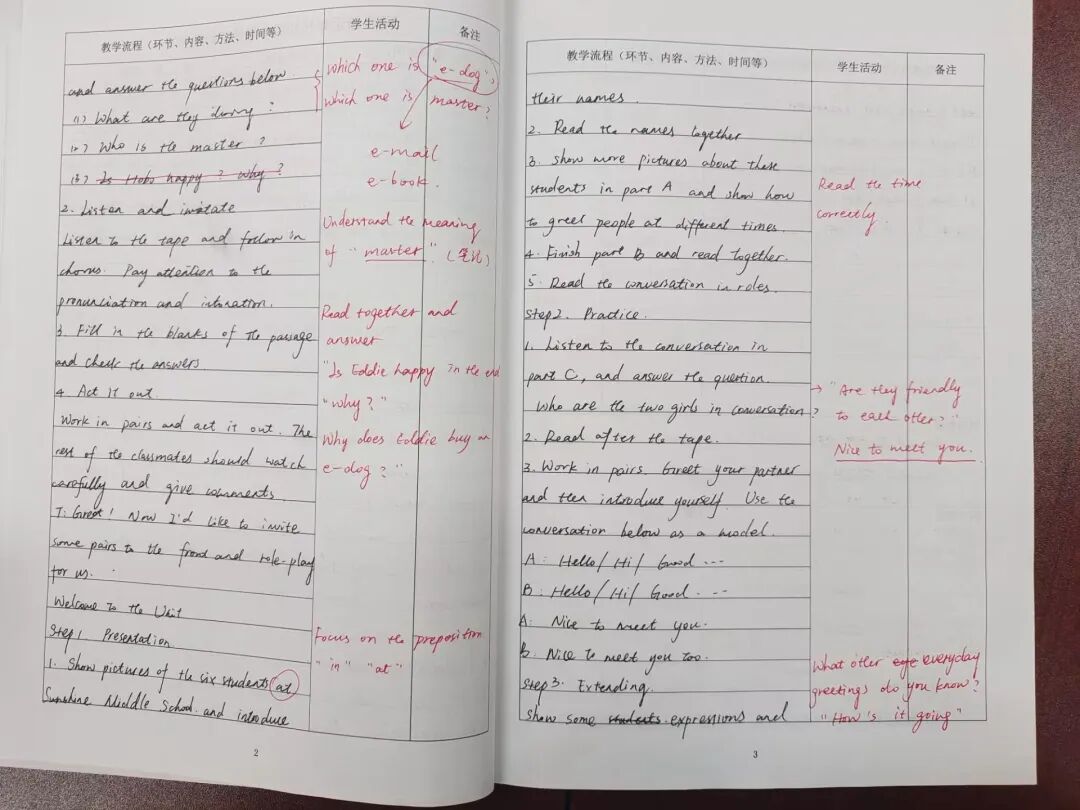 教学流程（环节、内容、方法、时间等）
学生活动
备注
and answer the questions below
(1) What are they doing?
(2) Who is the master?
(3) Is Hobo happy? Why?
2. Listen and imitate
Listen to the tape and follow in
chorus. Pay attention to the
pronunciation and intonation.
3. Fill in the blanks of the passage
and check the answers
4. Act it out.
Work in pairs and act it out. The
rest of the classmates should watch
carefully and give comments.
T: Great! Now I'd like to invite
some pairs to the front and role-play
for us.
Welcome to the Unit
Step 1. Presentation
1. Show pictures of the six students at
Sunshine Middle School and introduce
Which one is "e-dog",
Which one is master?
e-mail
e-book.
Understand the meaning
of "master". (笔记)
Read together and
answer
"Is Eddie happy in the end
"why?"
Why does Eddie buy an
e-dog?".
Focus on the preposition
"in" "at"
2
教学流程（环节、内容、方法、时间等）
学生活动
备注
their names.
2. Read the names together
3. Show more pictures about these
students in part A and show how
to greet people at different times.
4. Finish part B and read together.
5. Read the conversation in roles.
Step 2. Practice.
1. Listen to the conversation in
part C, and answer the question.
Who are the two girls in conversation?
2. Read after the tape.
3. Work in pairs. Greet your partner
and then introduce yourself. Use the
conversation below as a model.
A: Hello/Hi/ Good ---
B: Hello/Hi/ Good. ---
A: Nice to meet you.
B: Nice to meet you too.
Step 3. Extending.
Show some students expressions and
Read the time
correctly.
→ "Are they friendly
to each other?"
Nice to meet you.
What other everyday
greetings do you know?
"How's it going"
3